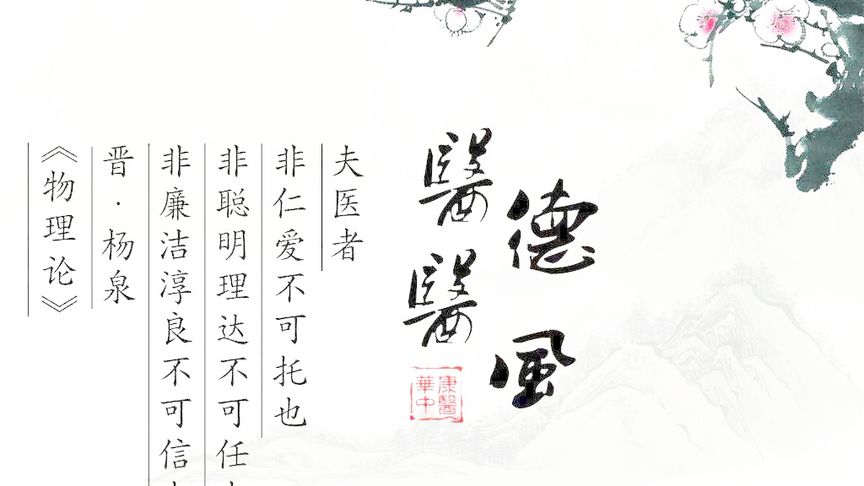 醫德
醫風
華康
中醫
夫医者
非仁爱不可托也
非聪明理达不可任
非廉洁淳良不可信
晋·杨泉
《物理论》